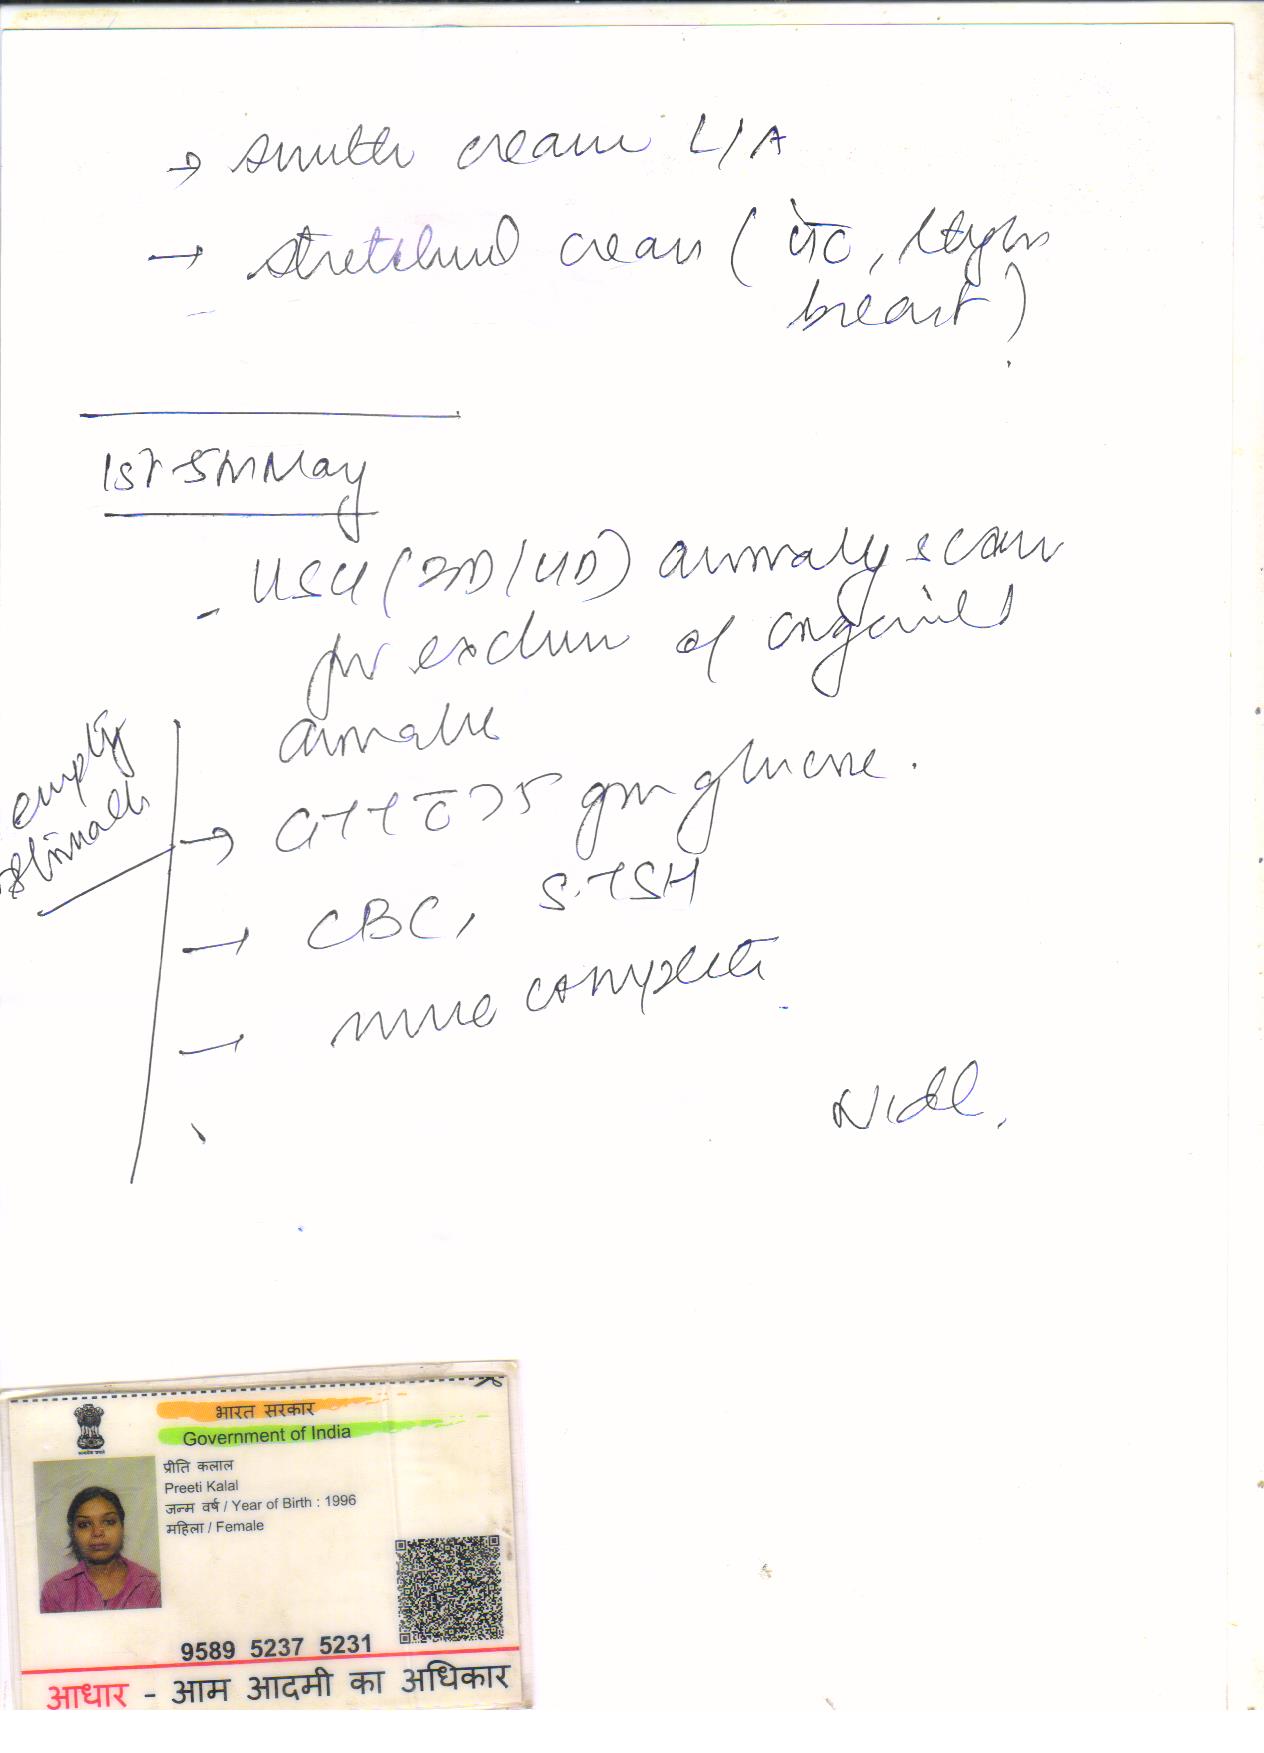 → smuth cream L/A
→ stretchnil cream ( पेट, thighs
breast )
1st 5m May
- USG (3D/4D) anomaly scan
for exclun of congenitl
anomalie
empty
stomach
→ GTT c̄ 75 gm glucose.
→ CBC, S.TSH
→ urine complete
Nidhi
भारत सरकार
Government of India
प्रीति कलाल
Preeti Kalal
जन्म वर्ष / Year of Birth : 1996
महिला / Female
9589 5237 5231
आधार - आम आदमी का अधिकार